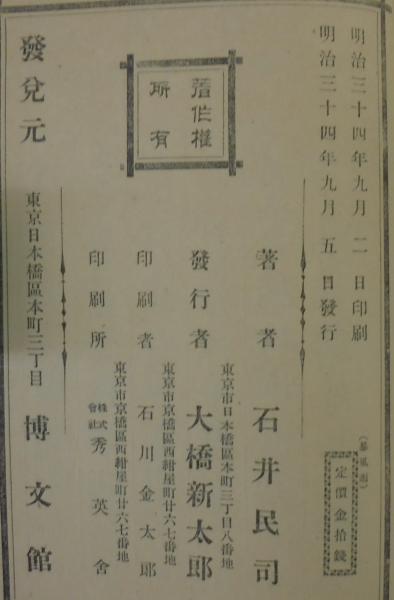 明治三十四年九月二日印刷
明治三十四年九月五日發行
定價金拾錢
著作權
所有
著者
石井民司
東京市日本橋區本町三丁目八番地
發行者
大橋新太郎
東京市京橋區西紺屋町廿六七番地
印刷者
石川金太郎
東京市京橋區西紺屋町廿六七番地
印刷所
株式
會社
秀英舍
發兌元
東京日本橋區本町三丁目
博文館